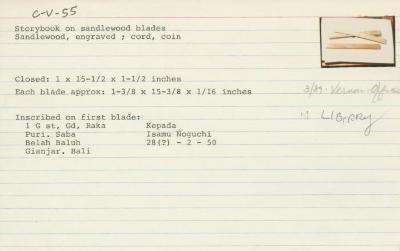 C-V-55
Storybook on sandlewood blades
Sandlewood, engraved ; cord, coin
Closed: 1 x 15-1/2 x 1-1/2 inches
Each blade approx: 1-3/8 x 15-3/8 x 1/16 inches
3/89 Vernon
" LIBRARY
Inscribed on first blade:
1 G st, Gd, Raka Kepada
Puri. Saba Isamu Noguchi
Belah Baluh 28(?) - 2 - 50
Gianjar. Bali